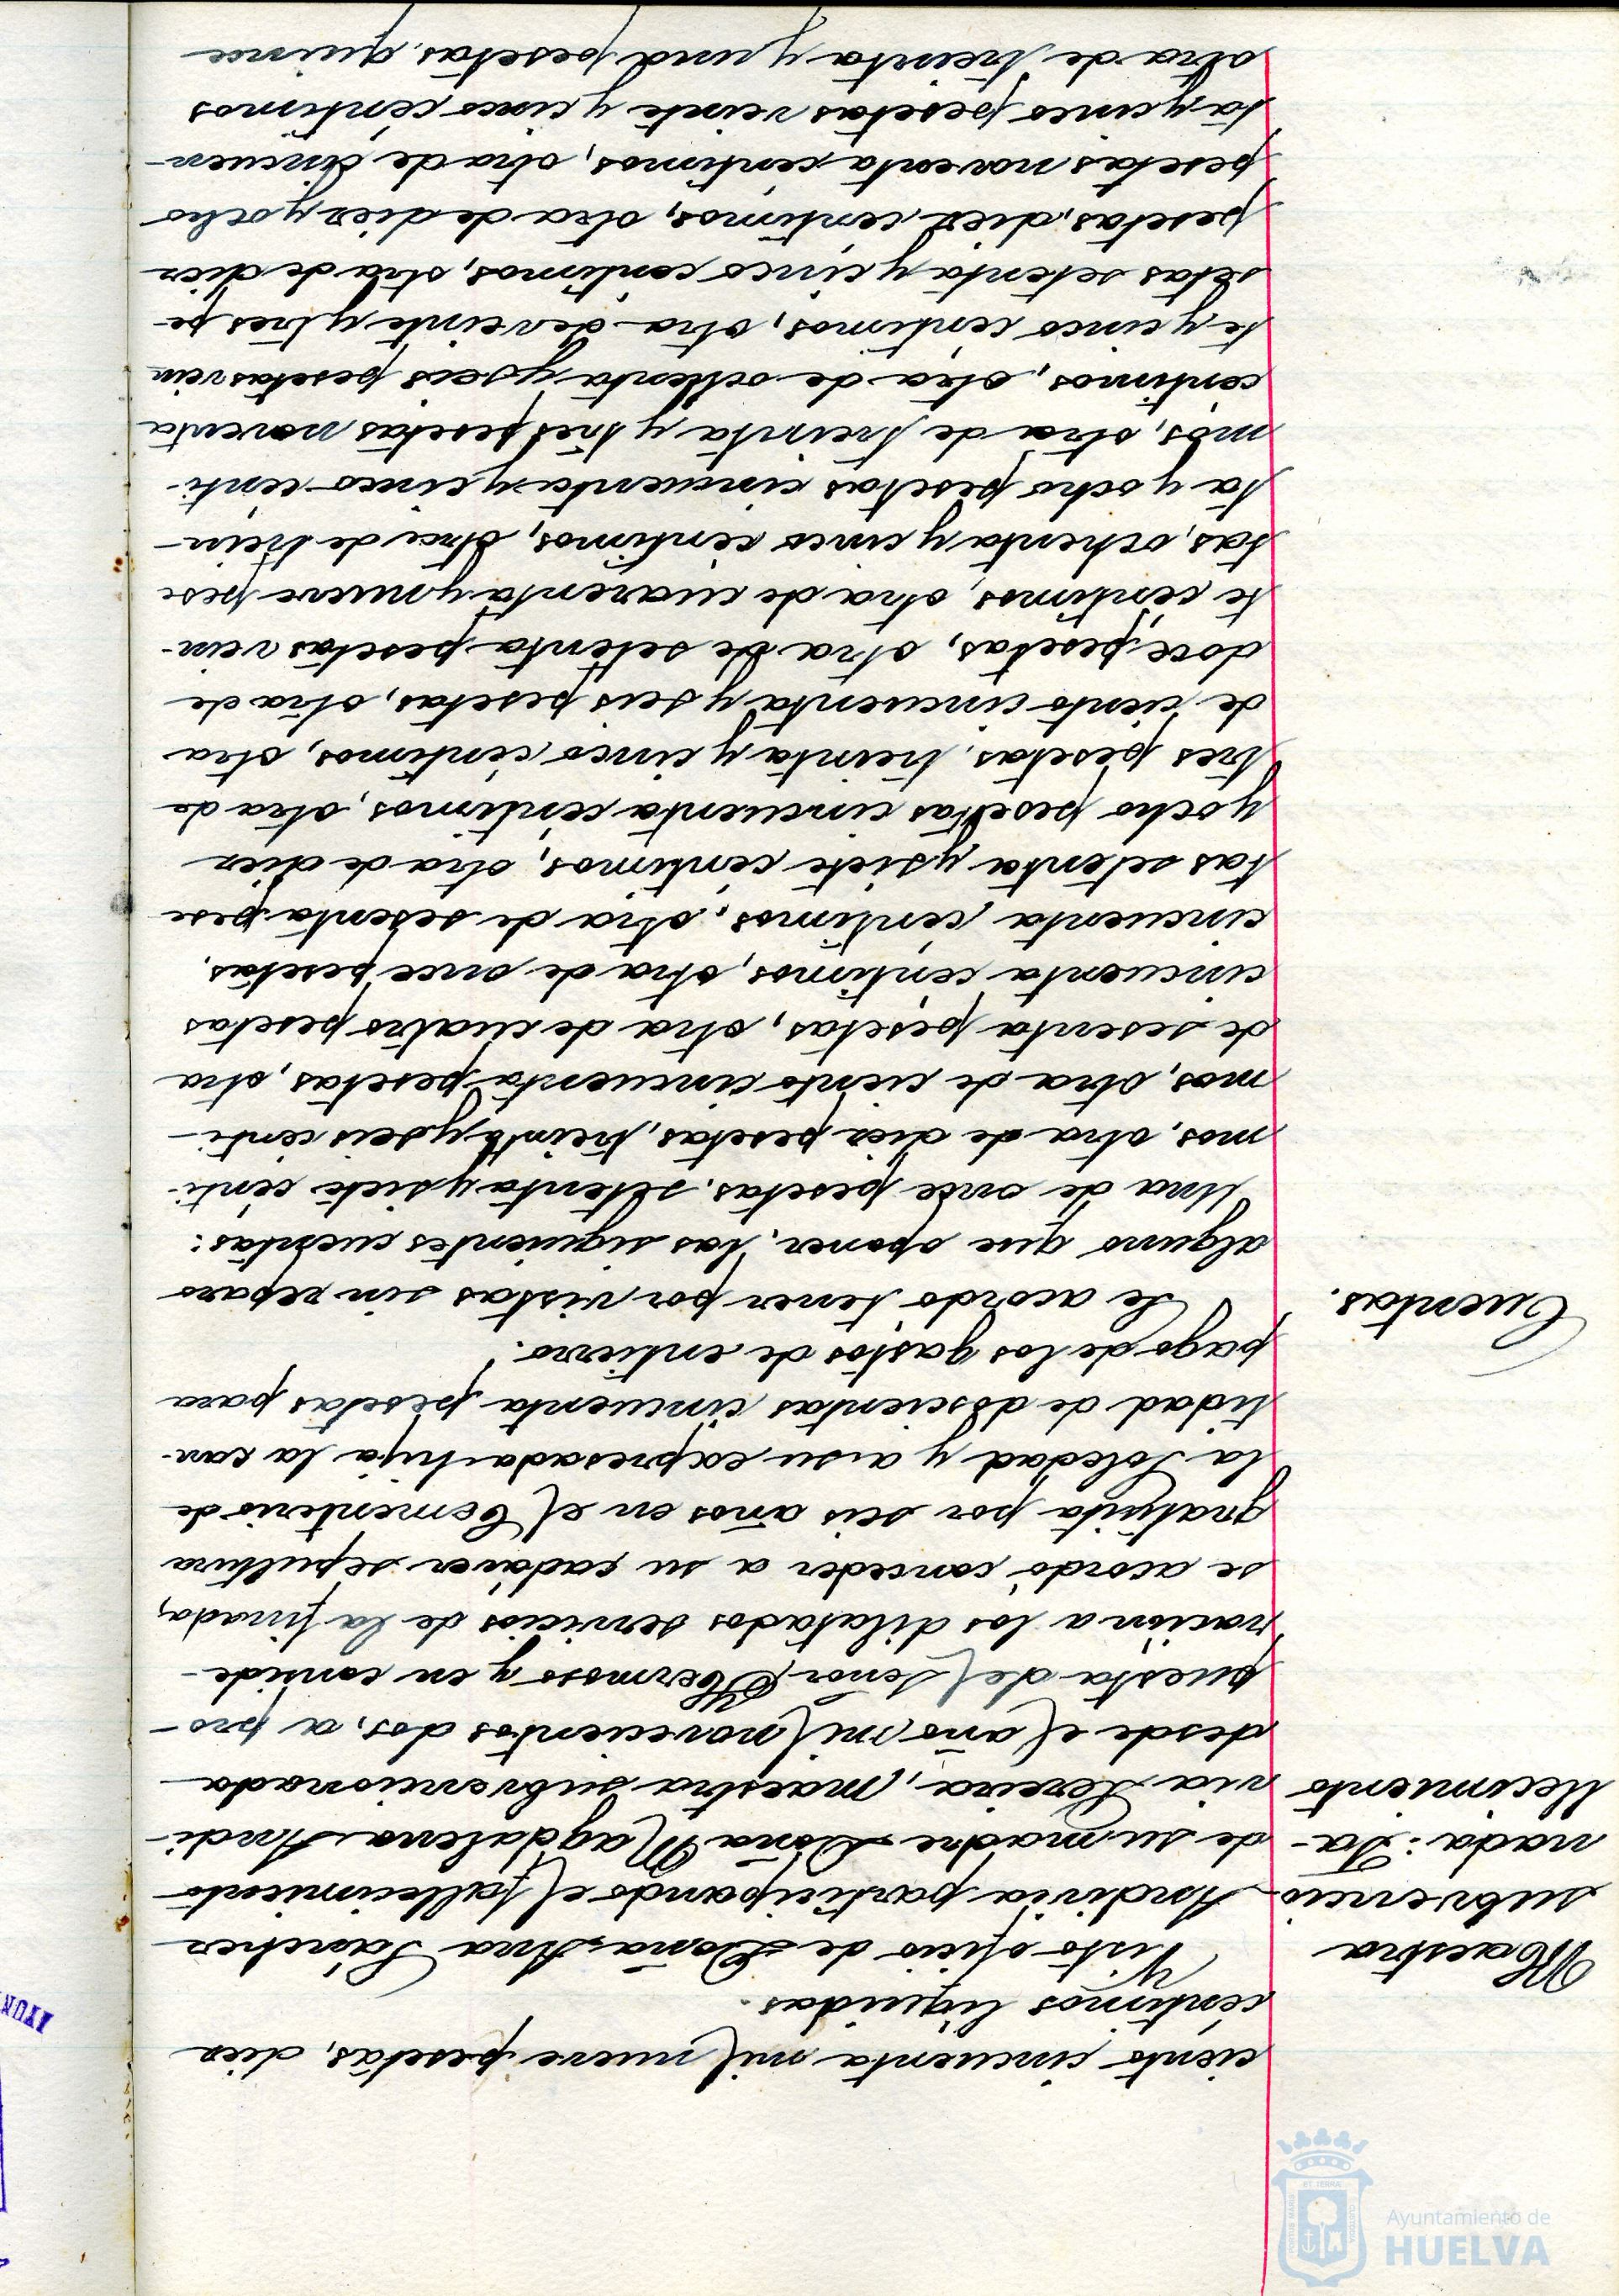 ciento cincuenta mil nueve pesetas, diez
céntimos líquidas.
Maestra
subvencio-
nada: Fa-
llecimiento
Visto oficio de Doña Ana Sánchez
Andivia participando el fallecimiento
de su madre Doña Magdalena Andi-
via Pereira, maestra subvencionada
desde el año mil novecientos dos, a pro-
puesta del Señor Hermoso y en conside-
ración a los dilatados servicios de la finada,
se acordó conceder a su cadáver sepultura
gratuita por seis años en el Cementerio de
la Soledad y a su expresada hija la can-
tidad de doscientas cincuenta pesetas para
pago de los gastos de entierro.
Cuentas.
Se acordó tener por vistas sin reparo
alguno que oponer, las siguientes cuentas:
Una de once pesetas, setenta y siete cénti-
mos, otra de diez pesetas, treinta y seis cénti-
mos, otra de ciento cincuenta pesetas, otra
de sesenta pesetas, otra de cuatro pesetas
cincuenta céntimos, otra de once pesetas,
cincuenta céntimos, otra de sesenta pese
tas setenta y siete céntimos, otra de diez
y ocho pesetas cincuenta céntimos, otra de
tres pesetas, treinta y cinco céntimos, otra
de ciento cincuenta y seis pesetas, otra de
doce pesetas, otra de setenta pesetas vein-
te céntimos, otra de cuarenta y nueve pese
tas, ochenta y cinco céntimos, otra de trein-
ta y ocho pesetas cincuenta y cinco cénti-
mos, otra de treinta y tres pesetas noventa
céntimos, otra de ochenta y seis pesetas vein
te y cinco céntimos, otra de veinte y tres pe-
setas setenta y cinco céntimos, otra de diez
pesetas, diez céntimos, otra de diez y ocho
pesetas noventa céntimos, otra de cincuen-
ta y cinco pesetas veinte y cinco céntimos
otra de treinta y una pesetas, quince
Ayuntamiento de
HUELVA